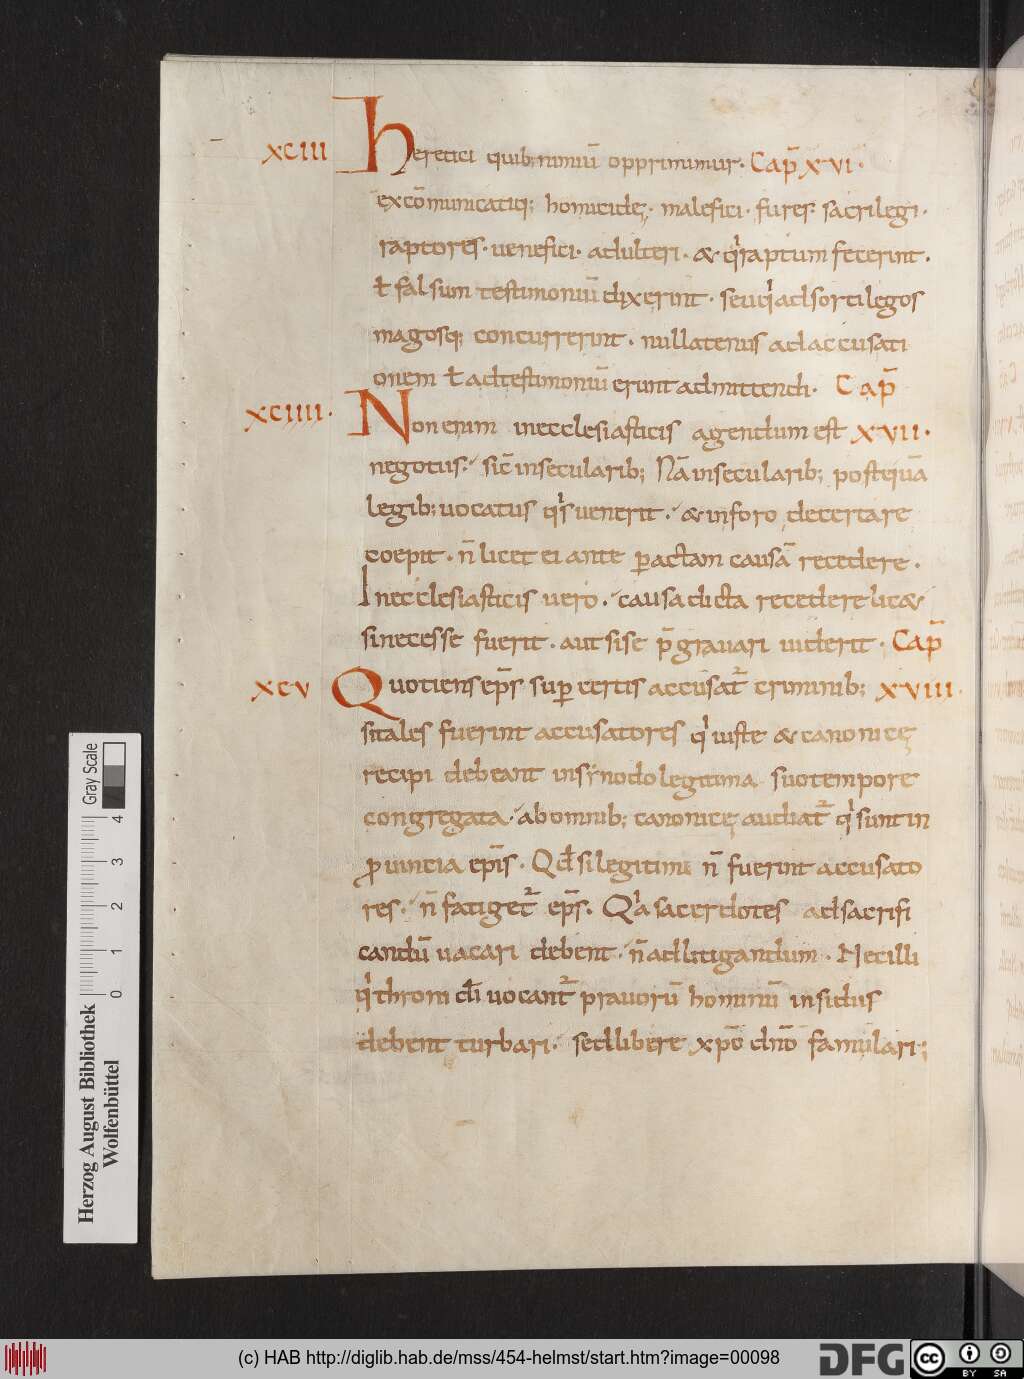 xciii Heretici quib; nimiū opprimimur. Cap̄ xvi.
excōmunicatiq; homicidę. malefici. fures. sacrilegi.
raptores. uenefici. adulteri. & qui raptum fecerint.
ł falsum testimoniū dixerint. seu qui ad sortilegos
magosq; concurrerint. nullatenus ad accusati
onem ł ad testimoniū erunt admittendi. Cap̄
xciiii. Non enim in ecclesiasticis agendum est xvii.
negotiis. sic̄ in secularib; Nā in secularib; postquā
legib; uocatus quis uenerit. & in foro decertare
coepit. n̄ licet ei ante peractam causā recedere.
In ecclesiasticis uero. causa dicta recedere lic&
si necesse fuerit. aut si se p̄grauari uiderit. Cap̄
xcv Quotiens ep̄s sup certis accusat̄ criminib; xviii.
si tales fuerint accusatores qui iuste & canonicę
recipi debeant in synodo legitima suo tempore
congregata. ab omnib; canonicę audiat̄ qui sunt in
prouincia ep̄is. Qd̄ si legitimi n̄ fuerint accusato
res. n̄ fatiget̄ ep̄s. Quia sacerdotes ad sacrifi
candū uacari debent. n̄ ad litigandum. Nec illi
qui throni dī uocant̄ prauorū hominū insidiis
debent turbari. sed libere xp̄o dn̄o famulari;
Gray Scale
4
3
2
1
0
Herzog August Bibliothek
Wolfenbüttel
(c) HAB http://diglib.hab.de/mss/454-helmst/start.htm?image=00098
DFG
cc BY SA